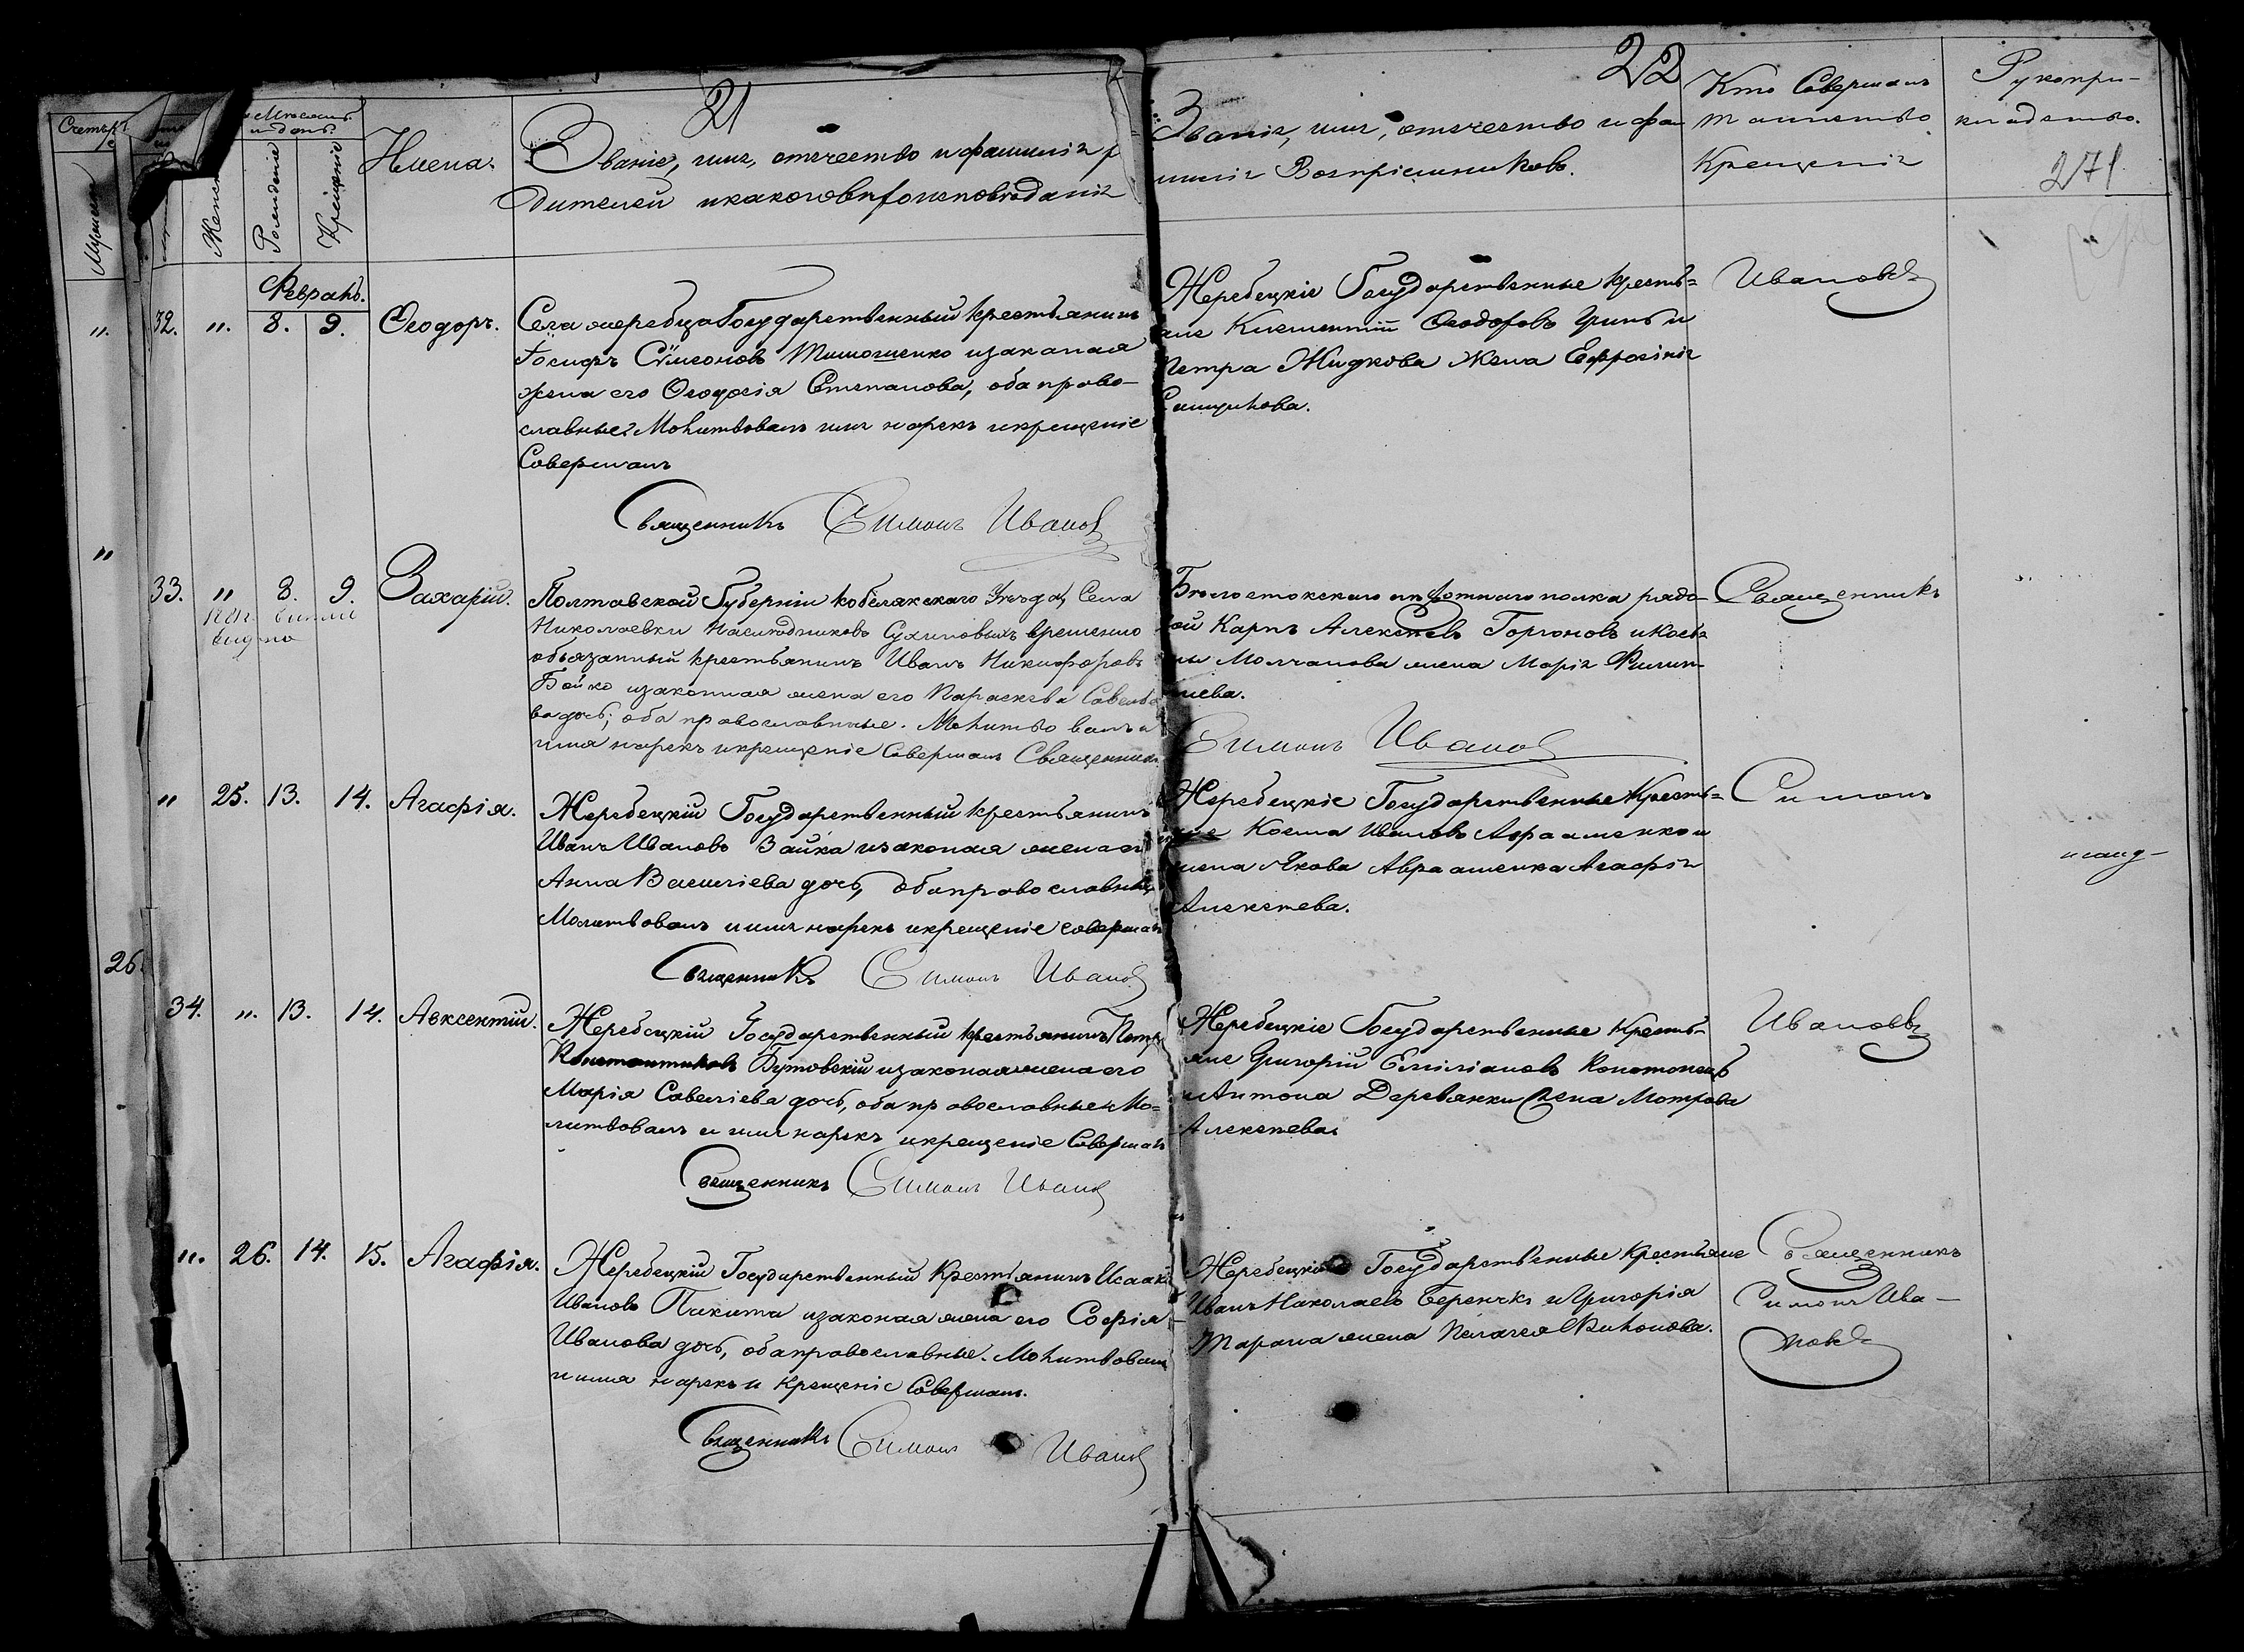 21
22
271
Счетъ
Мѣсяцъ
и день.
Имена.
Званіе, имя, отчество и фамилія
дителей и какого вѣроисповѣданія
Званіе, имя, отчество и фа
милія Воспріемниковъ.
Кто Совершалъ
таинство
Крещенія
Рукопри-
кладство.
Рожденіе
Крещеніе
Февраль.
". 32. ". 8. 9. Ѳеодоръ.
Села Жеребца Государственный крестьянинъ
Іосифъ Сѵмеоновъ Тимошенко и законая
жена его Ѳеодосія Степанова, оба право-
славные. Молитвовалъ имя нарекъ и крещеніе
Совершалъ
Священникъ Симонъ Ивановъ
Жеребецкіе Государственные кресть=
Климентій Ѳеодоровъ Гринь и
Петра Жидкова жена Ефросинія
Ивановъ
" 33. " 8. 9. Захарій.
Полтавской Губерніи Кобелякскаго Уѣзда, Села
Николаевки Наслѣдниковъ Сухиновыхъ временно
обязанный крестьянинъ Иванъ Никифоровъ
Бойко и законная жена его Параскева Савельє
ва дочь; оба православные. Молитвовалъ и
имя нарекъ и крещеніе Совершалъ Священникъ
Бѣлостокскаго пѣхотнаго полка рядо-
вой Карпъ Алексѣевъ Горгоновъ и Косъ
мы Молчанова жена Марія Филип-
пиева.
Симонъ Ивановъ
Священникъ
" 25. 13. 14. Агафія.
Жеребецкій Государственный крестьянинъ
Иванъ Ивановъ Зайка и законая жена его
Анна Василіева дочь, оба православные
Молитвовалъ и имя нарекъ и крещеніе совершалъ
Священникъ Симонъ Ивановъ
Жеребецкіе Государственные Кресть=
Косма Ивановъ Авраменко и
жена Якова Авраменка Агафія
Алексѣева.
Симонъ
26.
34. ". 13. 14. Авксентій.
Жеребецкій Государственный крестьянинъ Петръ
Константиновъ Бутовскій и законая жена его
Марія Савеліева дочь, оба православные Мо=
литвовалъ и имя нарекъ и крещеніе Совершалъ
Священникъ Симонъ Ивановъ
Жеребецкіе Государственные Кресть-
яне Григорій Емиліановъ Конотопецъ
и Антона Деревянки жена Мотрона
Алексѣева.
Ивановъ
". 26. 14. 15. Агафія.
Жеребецкій Государственный Крестьянинъ Исаакъ
Ивановъ Пикита и законая жена его Софія
Иванова дочь, оба православные. Молитвовалъ
и имя нарекъ и Крещеніе Совершалъ.
Священникъ Симонъ Ивановъ
Жеребецкіе Государственные Крестьяне
Иванъ Николаевъ Беренчкъ и Григорія
Тарана жена Пелагея
Священникъ
Симонъ Ива-
новъ